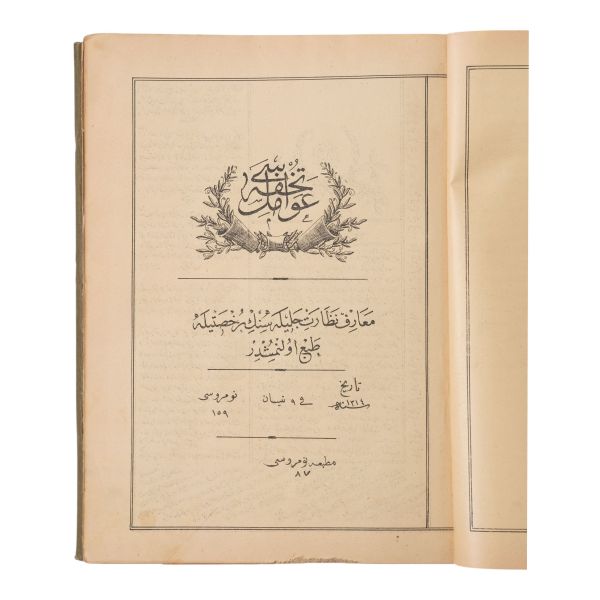 عوامل تحفه سی
معارف نظارت جلیله سنك رخصتیله
طبع اولنمشدر
تاریخ فی ٩ نیسان نومروسی
سنه ١٣١٤ ١٥٩
مطبعه نومروسی
٨٧